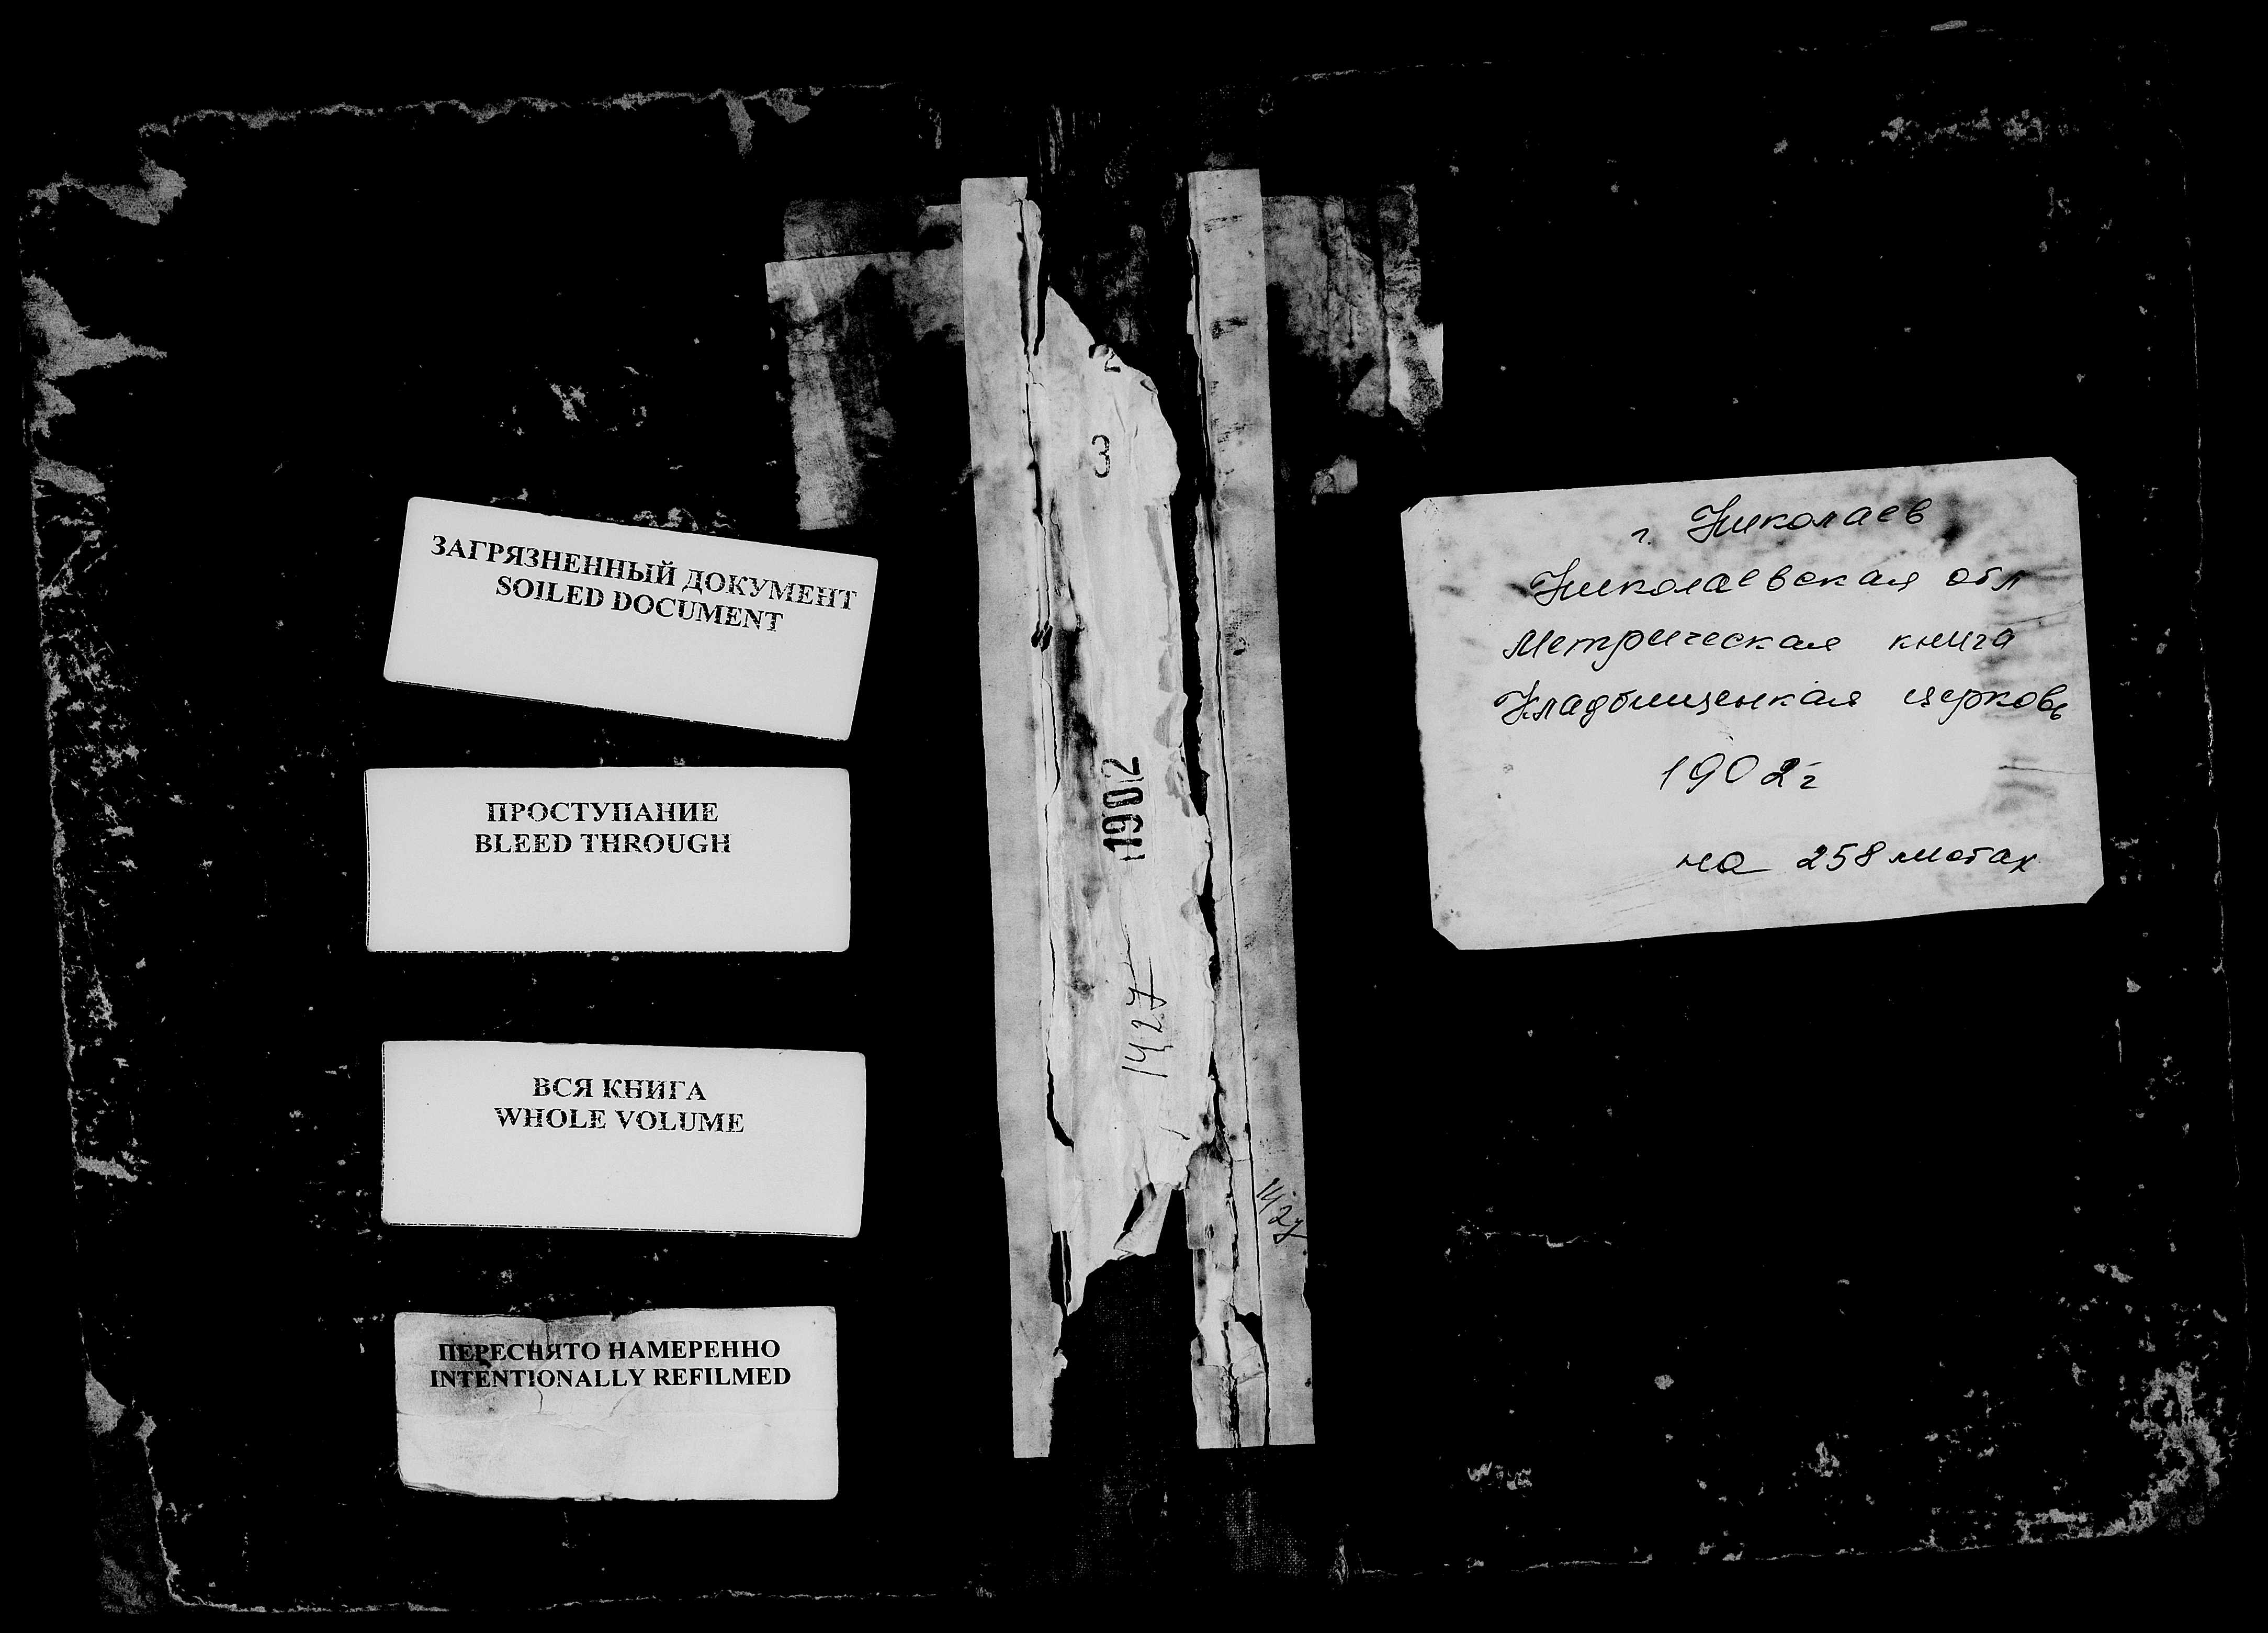 ЗАГРЯЗНЕННЫЙ ДОКУМЕНТ
SOILED DOCUMENT
ПРОСТУПАНИЕ
BLEED THROUGH
ВСЯ КНИГА
WHOLE VOLUME
ПЕРЕСНЯТО НАМЕРЕННО
INTENTIONALLY REFILMED
2
3
1902
1427
1427
г. Николаев
Николаевская обл
Метрическая книга
Кладбищенкая церковь
1902 г
на 258 листах